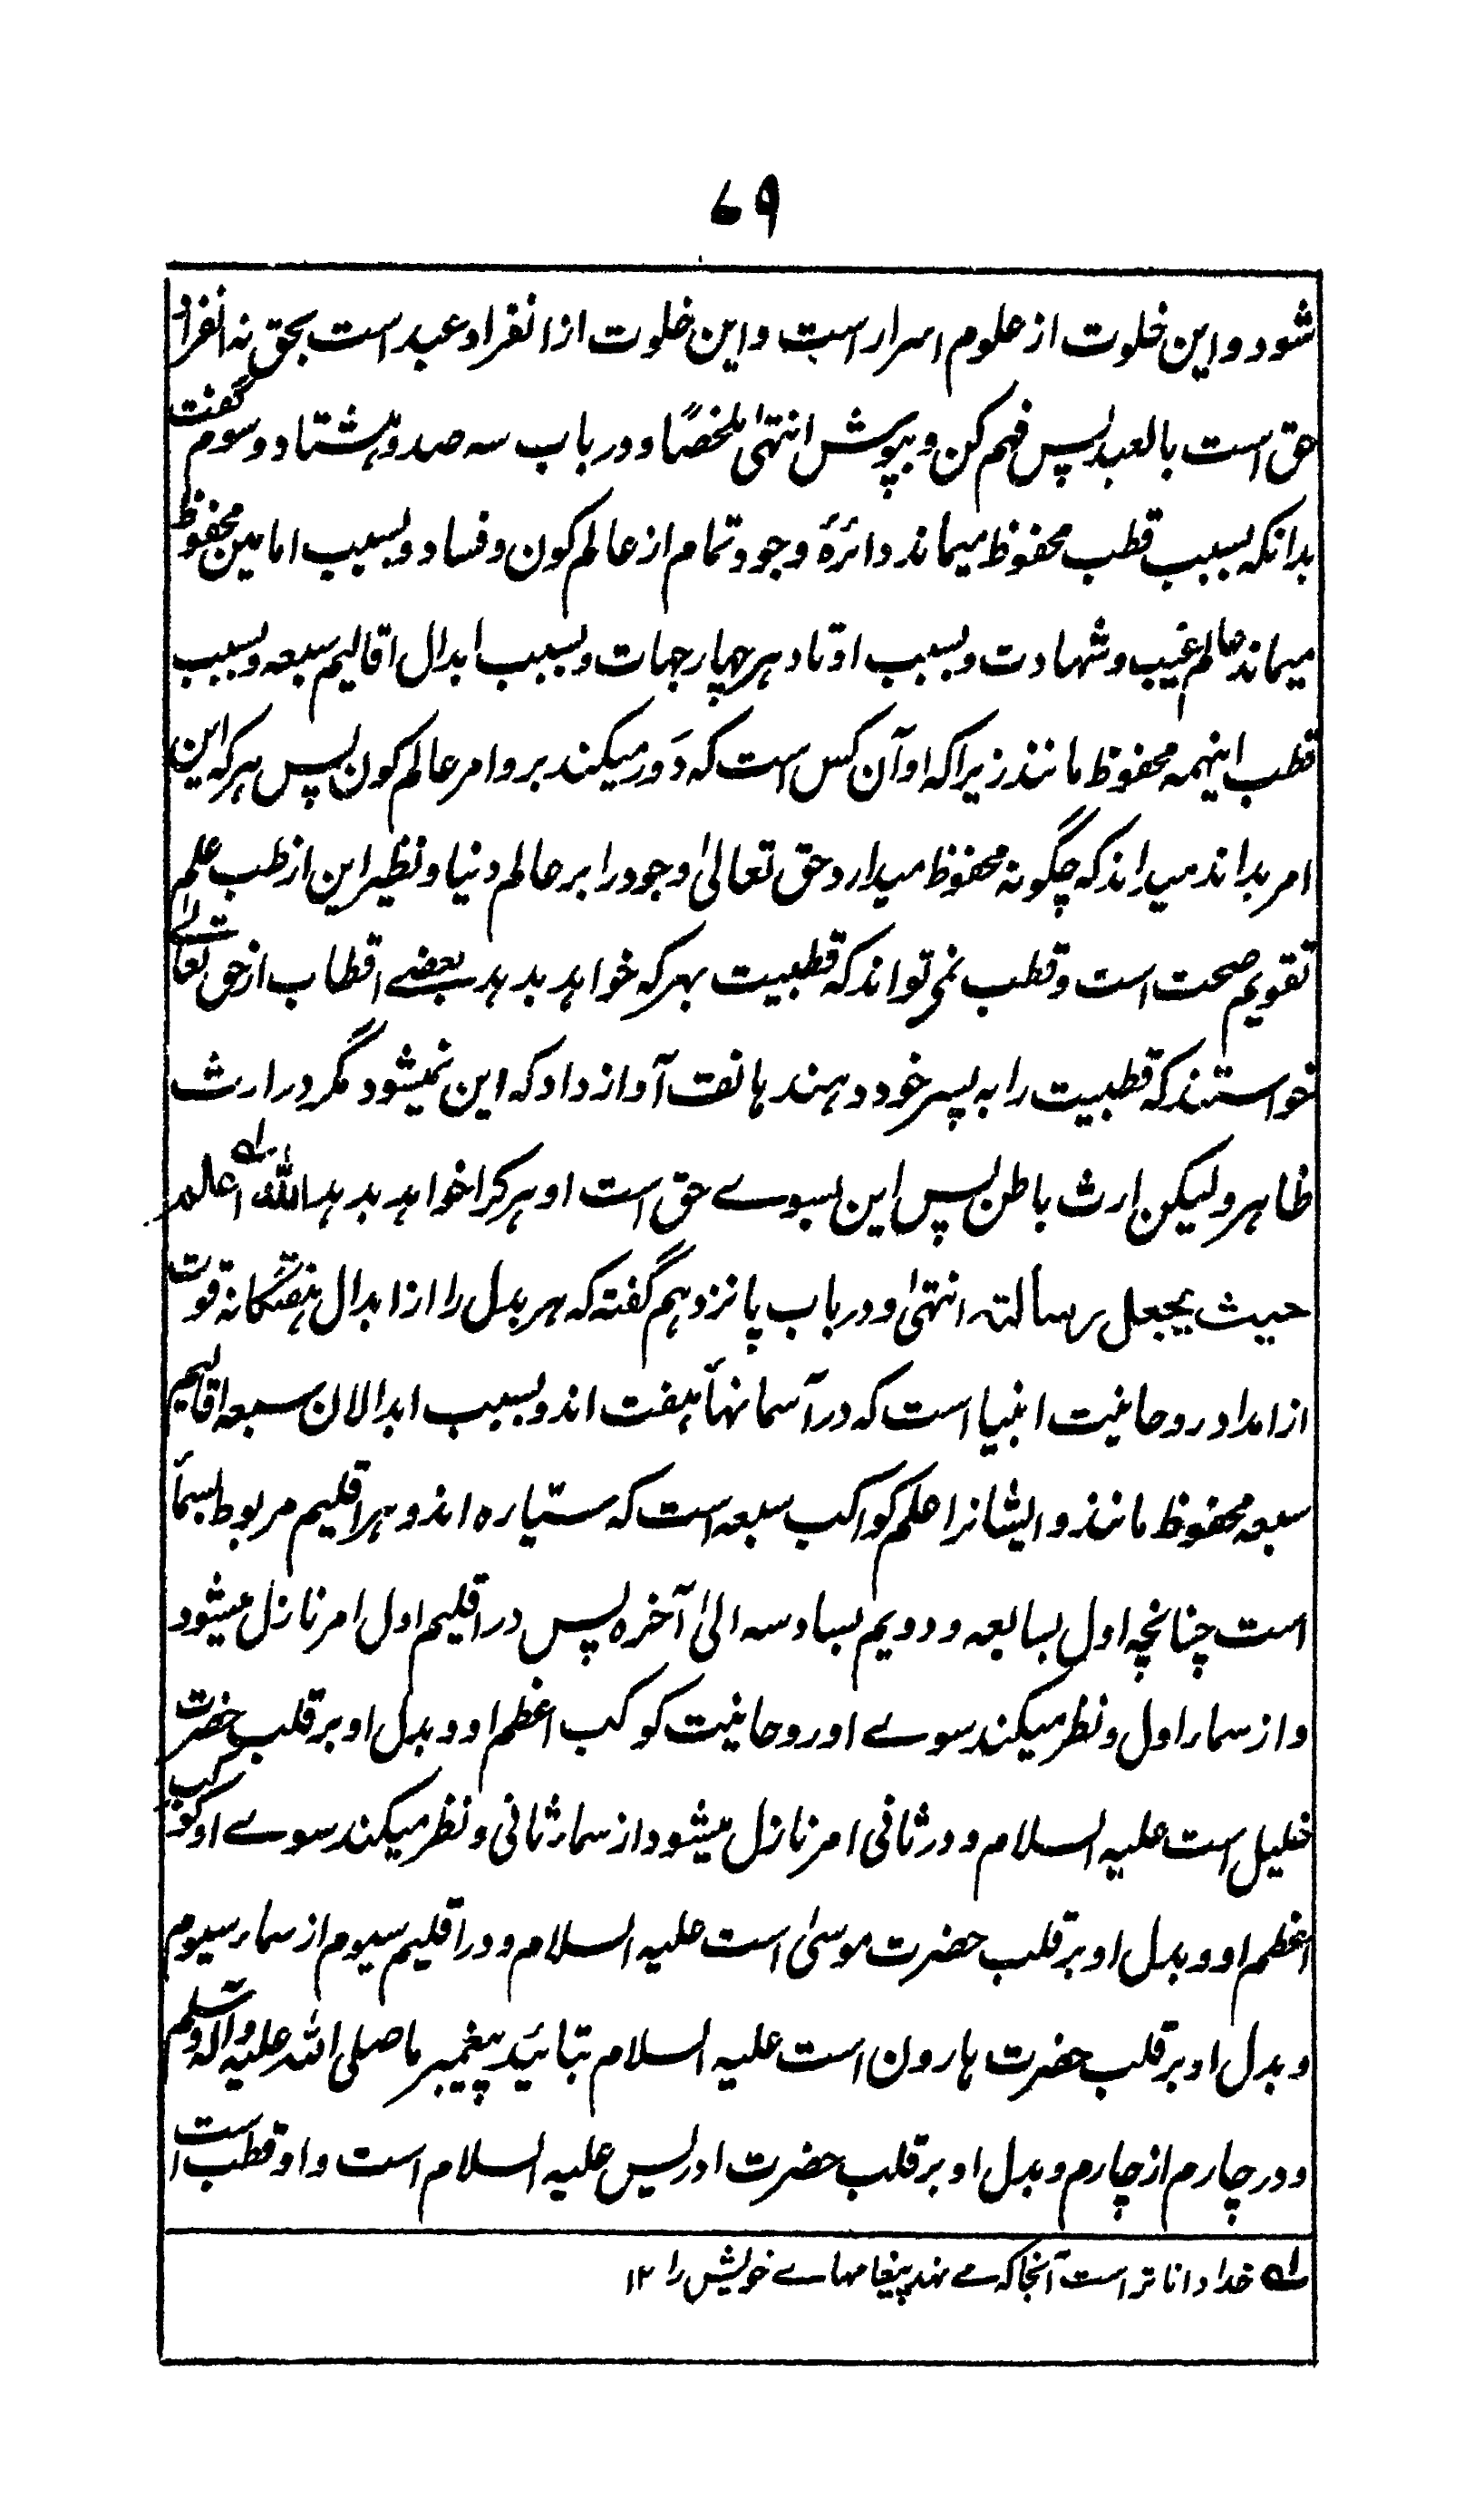 ۷۹
شود و این خلوت از علوم اسرار است و این خلوت از انفراد عبد است بحق نه انفراد
حق است بالعبد پس فهم کن و بپوش انتهیٰ ملخصًا و در باب سه صد و هشتاد و سوم گفت
بدانکه بسبب قطب محفوظ میماند دائرۂ وجود تمام از عالم کون و فساد و بسبب امامین محفوظ
میماند عالم غیب و شهادت و بسبب اوتاد هر چهار جهات و بسبب ابدال اقالیم سبعه و بسبب
قطب اینهمه محفوظ مانند زیرا که او آن کس است که دَور میکند برو امر عالم کون پس هر که این
امر بداند میداند که چگونه محفوظ میدارد حق تعالیٰ وجود را بر عالم دنیا و نظیر این از طب علم
تقویم صحت است و قطب نمی تواند که قطبیت بهر که خواهد بدهد بعضے اقطاب از حق تعالیٰ
خواستند که قطبیت را به پسر خود دهند هاتف آواز داد که این نمیشود مگر در ارث
ظاهر و لیکن ارث باطن پس این بسوے حق است او هر کرا خواهد بدهد الله اعلم
حیث یجعل رسالته انتهیٰ و در باب پانزدهم گفته که هر بدل را از ابدال هفتگانه قوت
از امداد روحانیت انبیا است که در آسمانها هفت اند و بسبب ابدالان سبعه اقالیم
سبعه محفوظ مانند و ایشانرا علم کواکب سبعه است که سیّاره اند و هر اقلیم مربوط بسما
است چنانچه اول بسابعه و دویم بسادسه الیٰ آخره پس در اقلیم اول امر نازل میشود
و از سماء اول و نظر میکند سوے او روحانیت کوکب اعظم او و بدل او بر قلب حضرت
خلیل است علیه السلام و در ثانی امر نازل میشود از سماء ثانی و نظر میکند سوے او کوکب
اعظم او و بدل او بر قلب حضرت موسیٰ است علیه السلام و در اقلیم سیوم از سماء سیوم
و بدل او بر قلب حضرت هارون است علیه السلام بتائید پیغمبر ما صلی الله علیه و آله وسلم
و در چارم از چارم و بدل او بر قلب حضرت ادریس علیه السلام است و او قطب است
له خدا داناتر است آنجا که مے نهد پیغامهاے خویش را ۱۲